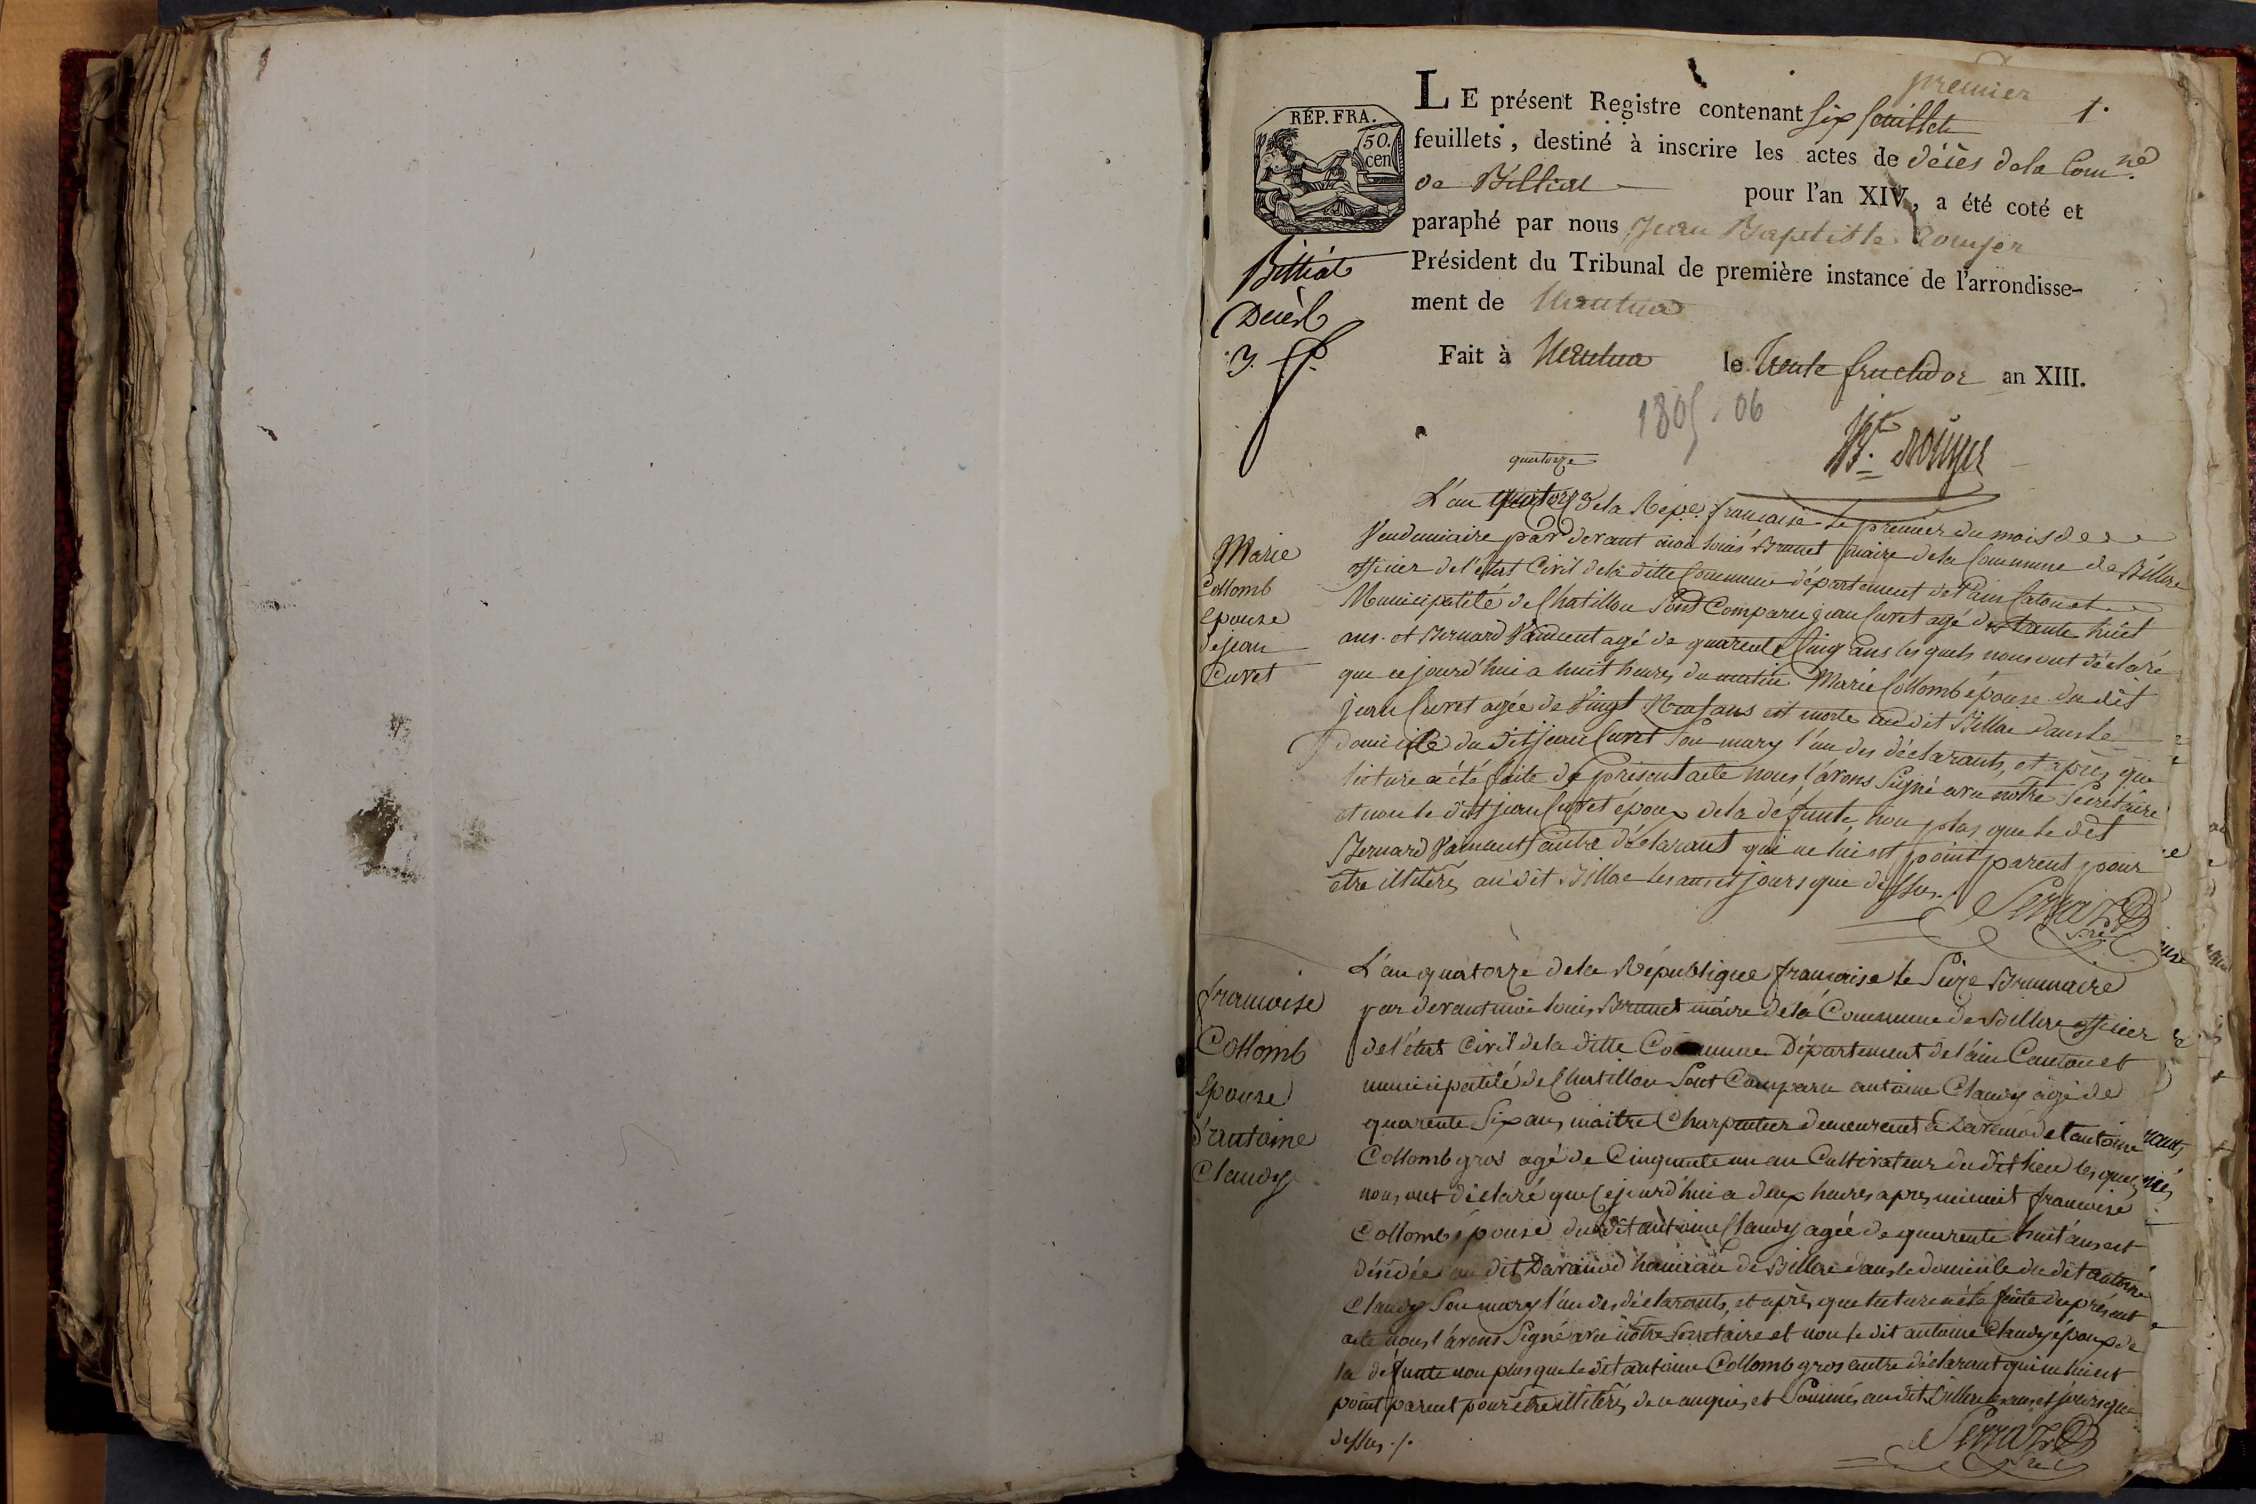 premier
1.
LE présent Registre contenant six feuillets
feuillets, destiné à inscrire les actes de décès de la Com.ne
de Billiat pour l'an XIV, a été coté et
paraphé par nous Jean Baptiste Rouyer
Président du Tribunal de première instance de l'arrondisse-
ment de Nantua
Fait à Nantua le trente fructidor an XIII.
RÉP. FRA.
50. cen
Billiat
Décès
3.
1805. 06
Bte. Rouyer
quatorze
L'an quatorze de la Répe. française le premier du mois de
Vendemiaire par devant moi Louis Brunet maire de la Commune de Billiae
officier de l'état Civil de la ditte Commune département de l'ain Caton et
Municipalité de Chatillon sont Comparu jean Curet agé de trante huit
ans. et Bernard Vaincent agé de quarente Cinq ans les quels nous ont déclaré
que ce jourd'hui a huit heures du matin Marie Collomb épouse du dit
jean Curet agée de Vingt Neuf ans est morte au dit Billae dans le
domicile du dit jean Curet son mary l'un des déclarants, et après que
licture a été faite du présent acte nous l'avons Signé avec nôtre Secrétaire
et non le dit jean Curet époux de la defunte, non plus que le dit
Bernard Vaincent l'autre déclarant qui ne lui est point parent pour
être illitérés au dit Billae les ans et jours que dessus.
Marie
Collomb
Epouse
de jean
Curet
L'an quatorze de la République française le Seize Brumaire
par devant moi Louis Brunet maire de la Commune de Billiae officier
de l'état Civil de la ditte Commune Département de l'ain Canton et
municipalité de Chatillon Sont Comparu antoine Claudy agé de
quarente Six ans, maitre Charpentier demeurent à Davanod et antoine
Collomb gros agé de Cinquante un an Cultivateur du dit lieu les quels
nous ont déclaré que Cejourd'hui a deux heures apres minuit francoise
Collomb épouse du dit antoine Claudy agée de quarente huit ans est
décédée au dit Davanod hameau de Billiae dans le domicile du dit antoine
Claudy Son mary l'un des déclarants, et après que licture a été faite du présent
acte nous l'avons Signé avec nôtre Secretaire et non le dit antoine Claudy époux de
la défunte non plus que le dit antoine Collomb gros autre déclarant qui ne lui est
point parent pour être illitérés de ce enquis et Sommés au dit Billiae les ans et jours que
dessus ./.
francoise
Collomb
Epouse
d'antoine
Claudy